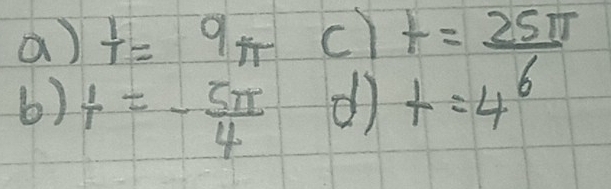 a) t = 9π c) t = 25π/6
b) t = - 5π/4 d) t = 4